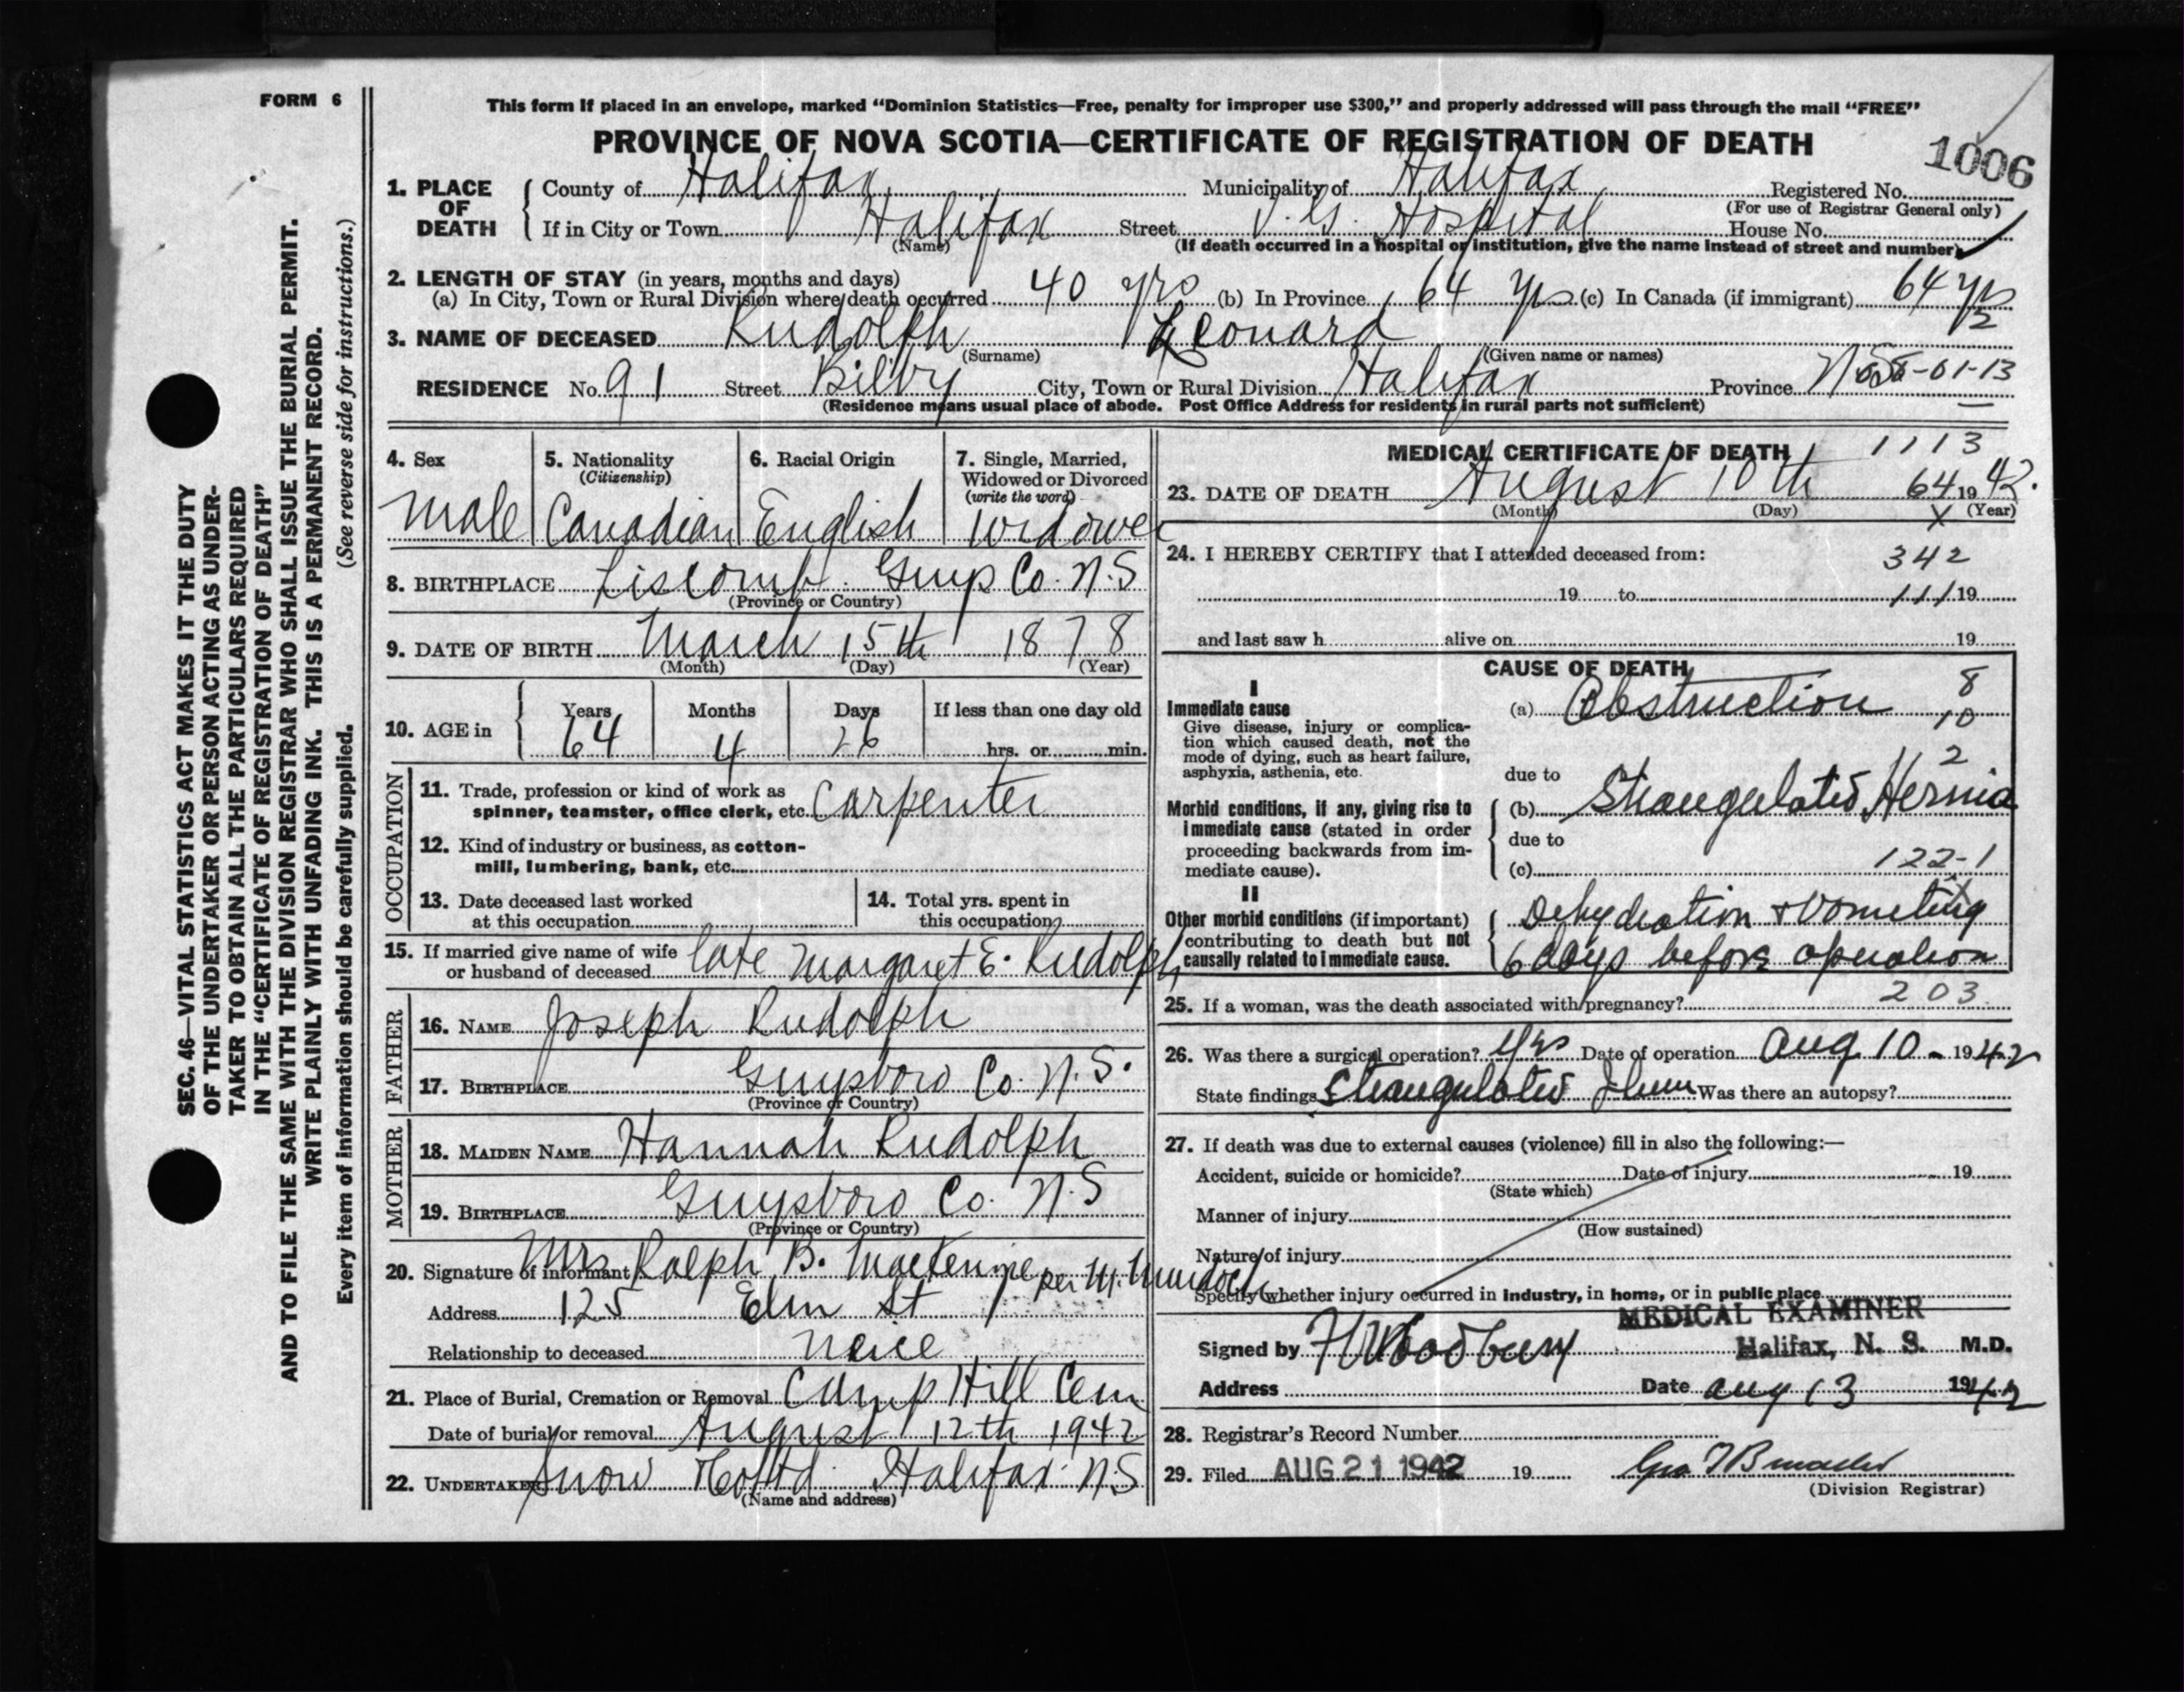 FORM 6
This form if placed in an envelope, marked "Dominion Statistics—Free, penalty for improper use $300," and properly addressed will pass through the mail "FREE"
PROVINCE OF NOVA SCOTIA—CERTIFICATE OF REGISTRATION OF DEATH
1006
1. PLACE OF DEATH County of Halifax Municipality of Halifax Registered No.
(For use of Registrar General only)
If in City or Town Halifax Street V. G. Hospital House No.
(Name) (If death occurred in a hospital or institution, give the name instead of street and number)
2. LENGTH OF STAY (in years, months and days)
(a) In City, Town or Rural Division where death occurred 40 yrs (b) In Province 64 yrs (c) In Canada (if immigrant) 64 yrs
2
3. NAME OF DECEASED Rudolph Leonard
(Surname) (Given name or names)
RESIDENCE No. 91 Street Bilby City, Town or Rural Division Halifax Province N.S. -01-13
(Residence means usual place of abode. Post Office Address for residents in rural parts not sufficient)
4. Sex 5. Nationality 6. Racial Origin 7. Single, Married,
(Citizenship) Widowed or Divorced
(write the word)
Male Canadian English Widower
8. BIRTHPLACE Liscomb Guys Co. N.S
(Province or Country)
9. DATE OF BIRTH March 15th 1878
(Month) (Day) (Year)
10. AGE in Years Months Days If less than one day old
64 4 26 hrs. or min.
OCCUPATION
11. Trade, profession or kind of work as
spinner, teamster, office clerk, etc. Carpenter
12. Kind of industry or business, as cotton-
mill, lumbering, bank, etc.
13. Date deceased last worked
at this occupation
14. Total yrs. spent in
this occupation
15. If married give name of wife
or husband of deceased late Margaret E. Rudolph
FATHER
16. NAME Joseph Rudolph
17. BIRTHPLACE Guysboro Co. N.S.
(Province or Country)
MOTHER
18. MAIDEN NAME Hannah Rudolph
19. BIRTHPLACE Guysboro Co. N.S
(Province or Country)
20. Signature of informant Mrs Ralph B. MacKenzie per M. Murdoch
Address 125 Elm St
Relationship to deceased Neice
21. Place of Burial, Cremation or Removal Camp Hill Cem
Date of burial or removal August 12th 1942
22. UNDERTAKER Snow & Co Ltd. Halifax N.S
(Name and address)
MEDICAL CERTIFICATE OF DEATH 1113
23. DATE OF DEATH August 10th 64 1942.
(Month) (Day) X (Year)
24. I HEREBY CERTIFY that I attended deceased from:
342
19 to 111 19
and last saw h alive on 19
CAUSE OF DEATH
I
Immediate cause
Give disease, injury or complica-
tion which caused death, not the
mode of dying, such as heart failure,
asphyxia, asthenia, etc.
(a) Obstruction 8
10
2
due to
Morbid conditions, if any, giving rise to
immediate cause (stated in order
proceeding backwards from im-
mediate cause).
(b) Strangulated Hernia
due to
(c) 122-1
II
Other morbid conditions (if important)
contributing to death but not
causally related to immediate cause.
Dehydration + Vomiting
6 days before operation
25. If a woman, was the death associated with pregnancy? 203
26. Was there a surgical operation? Yes Date of operation Aug. 10 - 1942
State findings Strangulated Ileum Was there an autopsy?
27. If death was due to external causes (violence) fill in also the following:—
Accident, suicide or homicide? Date of injury 19
(State which)
Manner of injury
(How sustained)
Nature of injury
Specify whether injury occurred in industry, in home, or in public place
MEDICAL EXAMINER
Signed by Woodbury Halifax, N. S. M.D.
Address Date Aug 13 1942
28. Registrar's Record Number
29. Filed AUG 21 1942 19
(Division Registrar)
SEC. 46—VITAL STATISTICS ACT MAKES IT THE DUTY
OF THE UNDERTAKER OR PERSON ACTING AS UNDER-
TAKER TO OBTAIN ALL THE PARTICULARS REQUIRED
IN THE "CERTIFICATE OF REGISTRATION OF DEATH"
AND TO FILE THE SAME WITH THE DIVISION REGISTRAR WHO SHALL ISSUE THE BURIAL PERMIT.
WRITE PLAINLY WITH UNFADING INK. THIS IS A PERMANENT RECORD.
Every item of information should be carefully supplied. (See reverse side for instructions.)